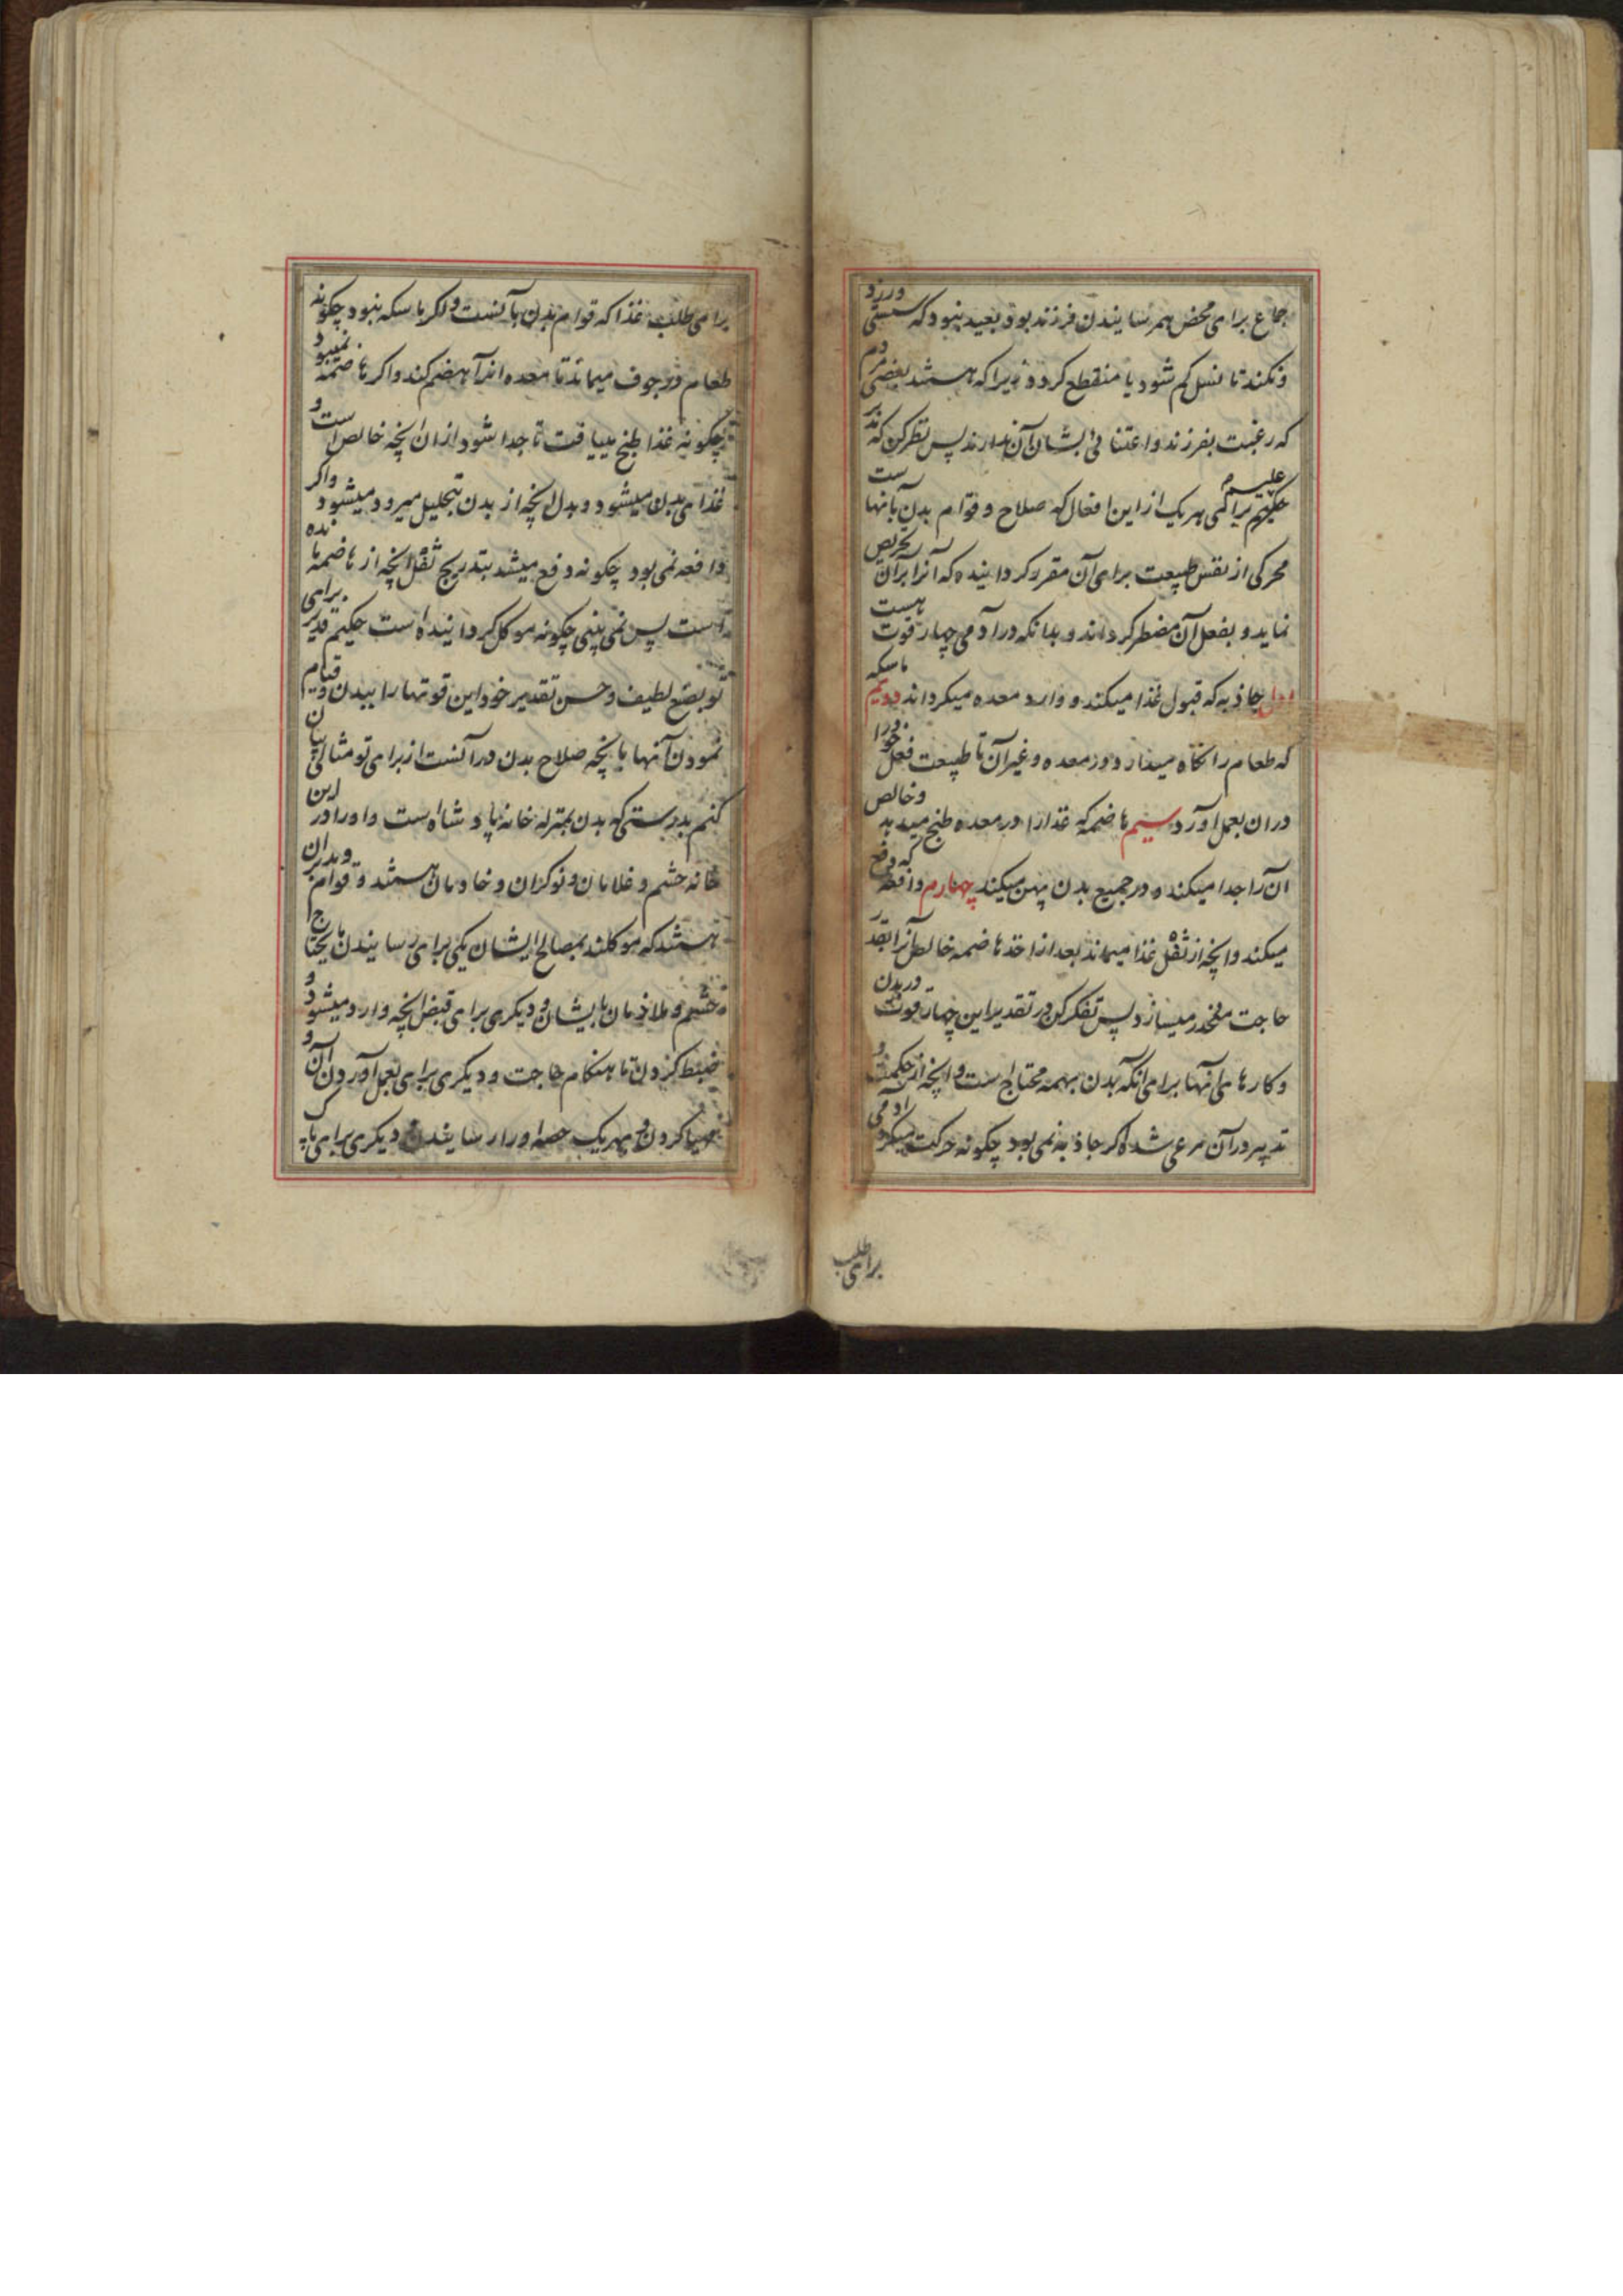 جماع برای محض بهمرسانیدن فرزند بود بعید نبود که سستی ورزد
و نکند تا نسل کم شود یا منقطع کردد زیرا که هستند بعضی مردم
که رغبت بفرزند و اعتنائی بشان آن ندارند پس نظر کن که
حکیم علیم برای هر یک از این افعال که صلاح و قوام بدن بآنها است
محرکی از نفس طبیعت برای آن مقرر کردانیده که آنرا بر آن تحریص
نماید و بفعل آن مضطر کرداند و بدانکه در آدمی چهار قوت هست
اول جاذبه که قبول غذا میکند و وارد معده میکرداند دویم ماسکه
که طعام را نکاه میدارد در معده و غیر آن تا طبیعت فعل خود را
در ان بعمل اورد سیم هاضمه که غذا را در معده طبخ میدهد و خالص
ان را جدا میکند و در جمیع بدن پهن میکند چهارم دافعه که دفع
میکند و انچه از ثفل غذا میماند بعد از اخذ هاضمه خالص آنرا بقدر
حاجت منحدر میسازد پس تفکر کن در تقدیر این چهار قوت در بدن
و کارهای آنها برای آنکه بدن بهمه محتاج است و انچه از حکمت و
تدبیر در آن مرعی شده اکر جاذبه نمی بود چکونه حرکت میکرد ادمی
برای طلب
برای طلب غذا که قوام بدن بآنست و اکر ماسکه نبود چکونه
طعام در جوف میماند تا معده انرا هضم کند و اکر هاضمه نمیبود
چکونه غذا طبخ مییافت تا جدا شود از ان انچه خالص است و
غذای بدن میشود و بدل انچه از بدن بتحلیل میرود میشود و اکر
دافعه نمی بود چکونه دفع میشد بتدریج ثفل انچه از هاضمه مانده
است پس نمی بینی چکونه موکل کردانیده است حکیم قدیر برای
تو بصنع لطیف و حسن تقدیر خود این قوتها را ببدن و قیام
نمودن آنها بانچه صلاح بدن در آنست از برای تو مثالی بیان
کنم بدرستی که بدن بمنزله خانه پادشاه است و او را در این
خانه حشم و غلامان و نوکران و خادمان هستند و قوام و مدبران
هستند که موکلند بمصالح ایشان یکی برای رسانیدن مایحتاج
حشم و ملازمان بایشان و دیکری برای قبض انچه وارد میشود و
ضبط کردن تا هنکام حاجت و دیکری برای بعمل آوردن آن و
مهیا کردن و بهر یک حصه او را رسانیدن و دیکری برای پاک